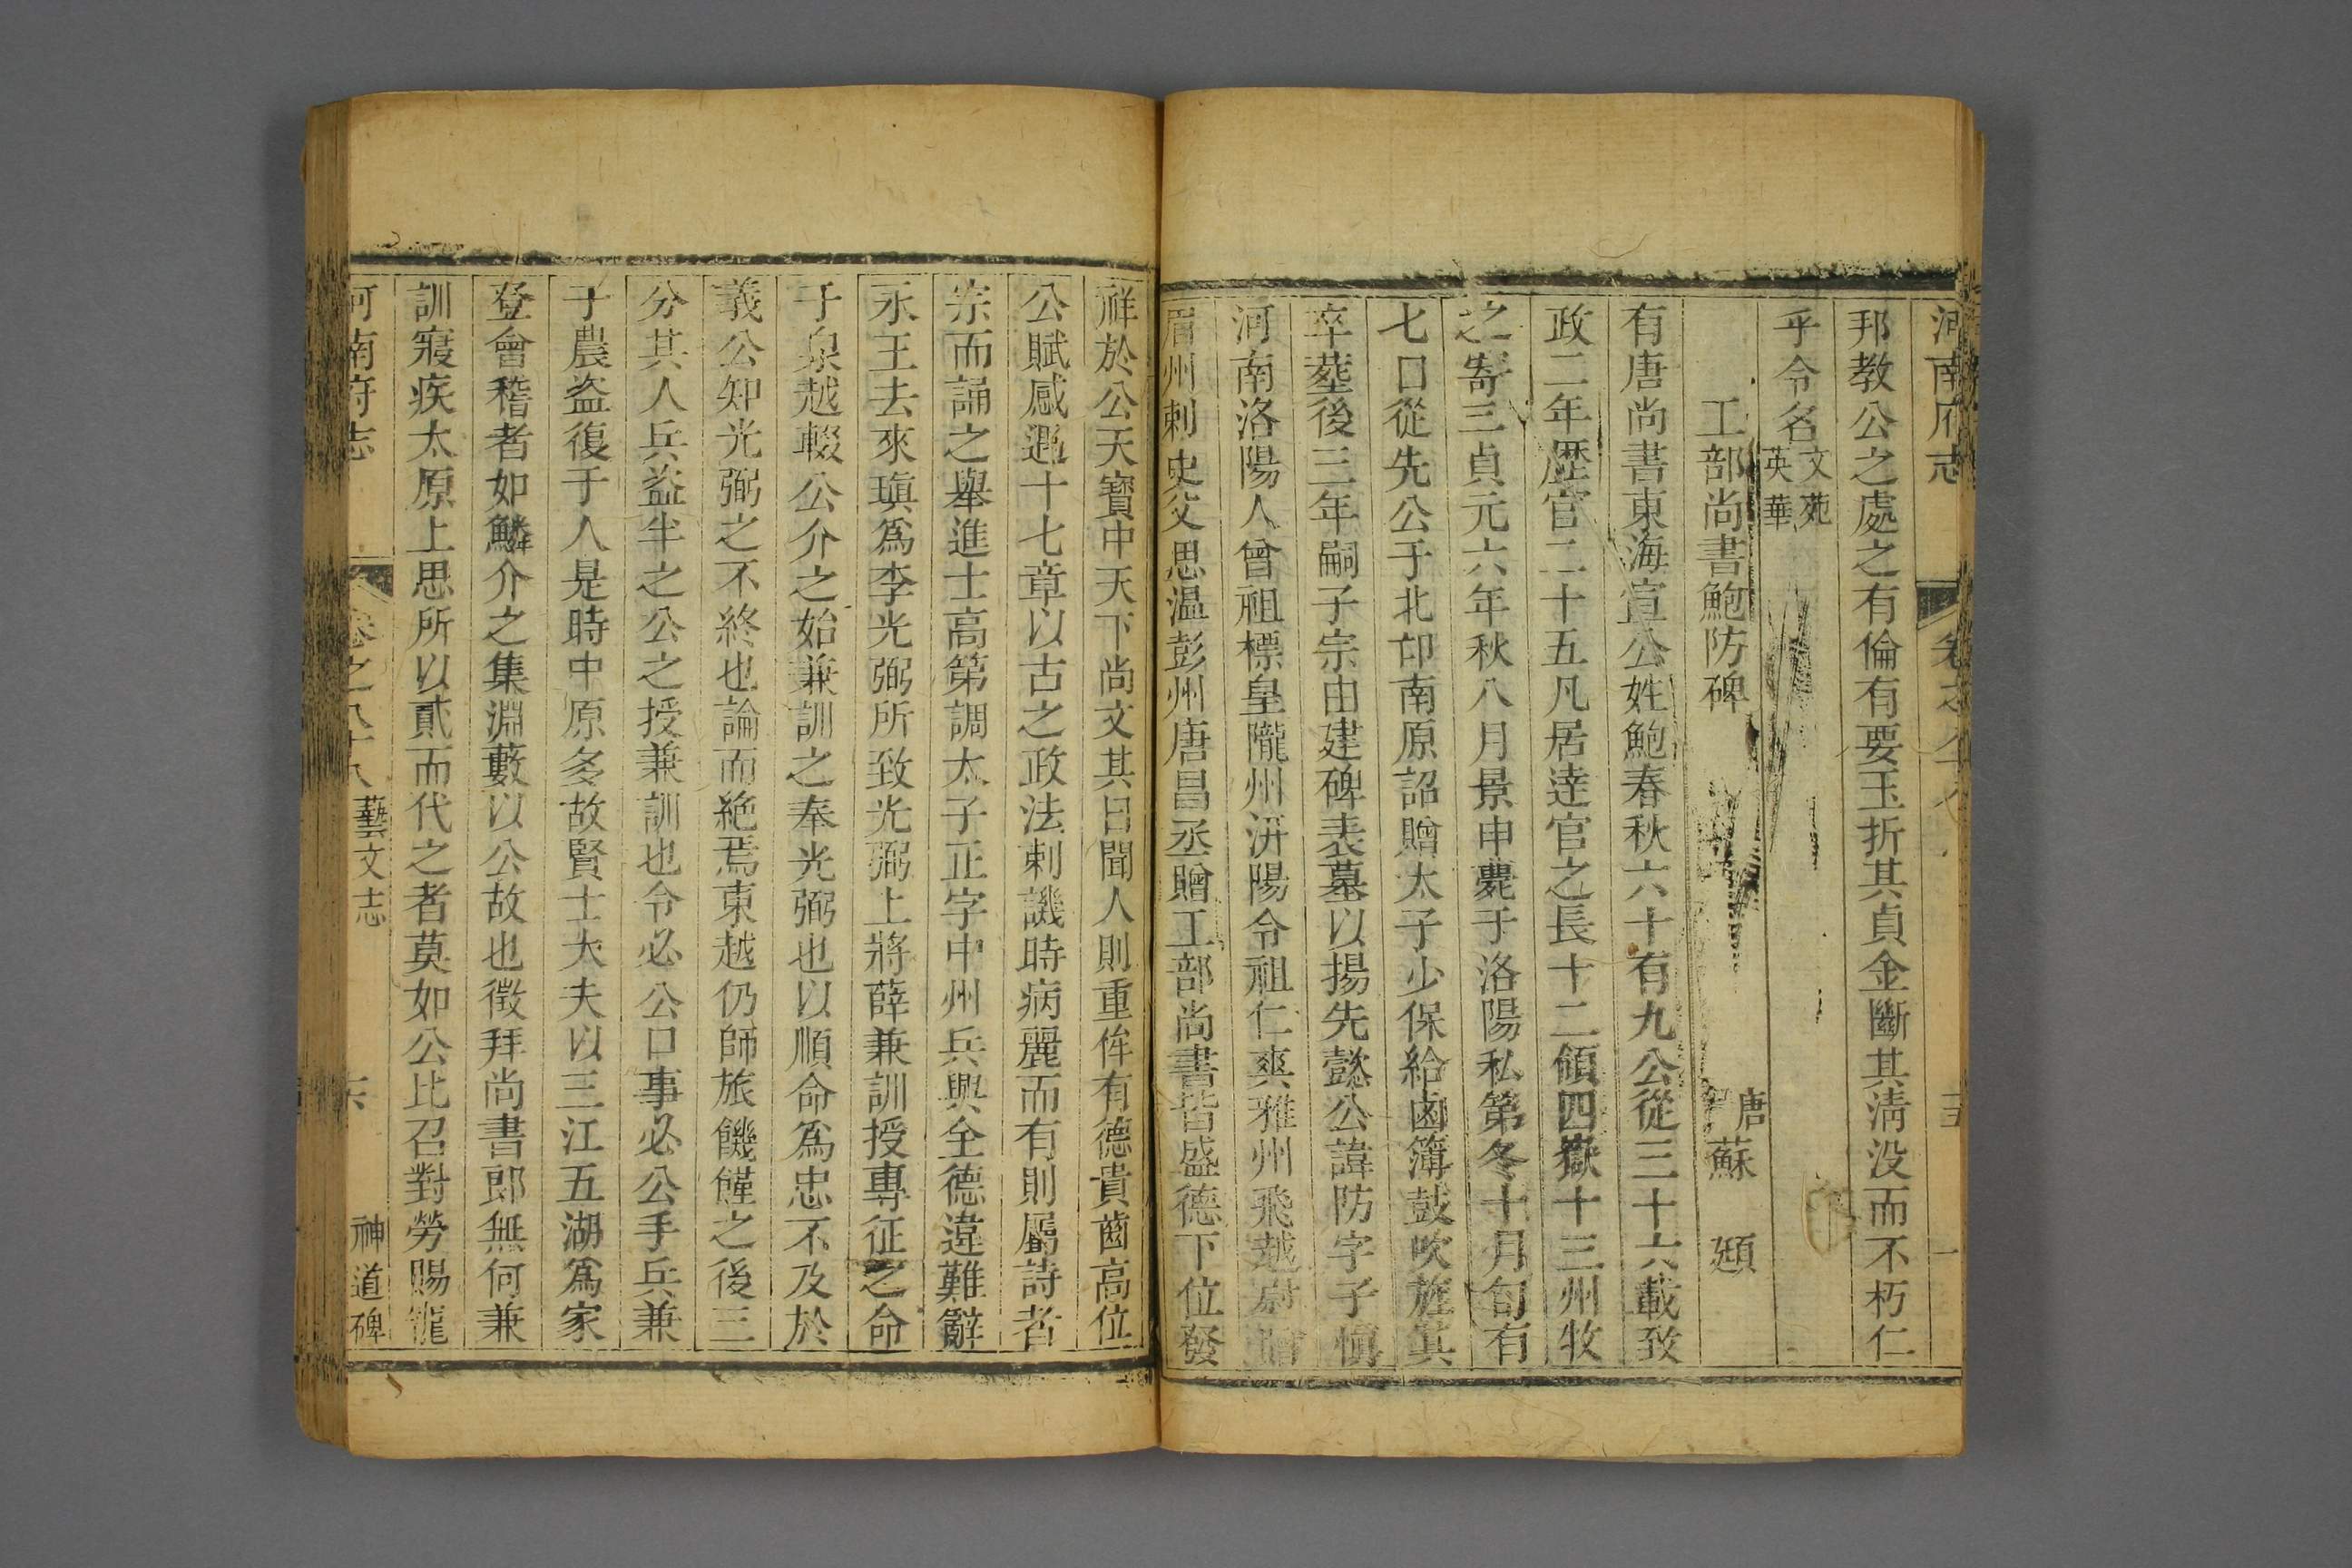 河南府志
邦教公之處之有倫有要玉折其貞金斷其淸没而不朽仁
乎令名文苑英華
工部尚書鮑防碑 唐 蘇 頲
有唐尚書東海宣公姓鮑春秋六十有九公從三十六載致
政二年歴官二十五凡居逹官之長十二領四嶽十三州牧
之寄三貞元六年秋八月景申薨于洛陽私第冬十月旬有
七日從先公于北邙南原詔贈太子少保給鹵簿鼓吹旌其
卒葬後三年嗣子宗由建碑表墓以揚先懿公諱防字子慎
河南洛陽人曾祖標皇隴州汧陽令祖仁爽雅州飛越尉贈
眉州刺史父思温彭州唐昌丞贈工部尚書皆盛德下位發
祥於公天寶中天下尚文其曰聞人則重侔有德貴齒高位
公賦感遇十七章以古之政法刺譏時病麗而有則屬詩者
宗而誦之舉進士高第調太子正字中州兵興全德違難辭
永王去來瑱爲李光弼所致光弼上將薛兼訓授專征之命
于泉越輟公介之始兼訓之奉光弼也以順命爲忠不及於
義公知光弼之不終也論而絶焉東越仍師旅饑饉之後三
分其人兵盗半之公之授兼訓也令必公口事必公手兵兼
于農盗復于人是時中原多故賢士大夫以三江五湖爲家
登會稽者如鱗介之集淵藪以公故也徵拜尚書郎無何兼
訓寢疾太原上思所以貳而代之者莫如公比召對勞賜寵
河南府志 卷之八十八 藝文志 六 神道碑